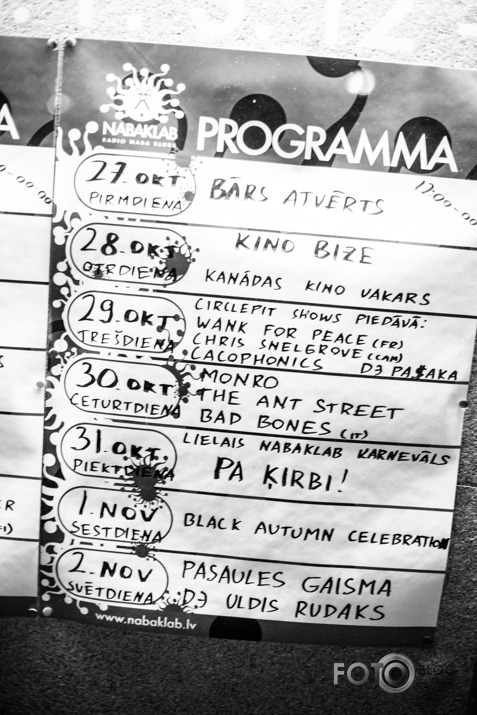 NABAKLAB
RADIO NABA KLUBS
PROGRAMMA
27. OKT
PIRMDIENA
BĀRS ATVĒRTS
28. OKT
OTRDIENA
KINO BIZE
KANĀDAS KINO VAKARS
29. OKT
TREŠDIENA
CIRCLEPIT SHOWS PIEDĀVĀ:
WANK FOR PEACE (FR)
CHRIS SNELGROVE (CAN)
CACOPHONICS DJ PAŠAKA
30. OKT
CETURTDIENA
MONRO
THE ANT STREET
BAD BONES (IT)
31. OKT.
PIEKTDIENA
LIELAIS NABAKLAB KARNEVĀLS
PA ĶIRBI!
1. NOV
SESTDIENA
BLACK AUTUMN CELEBRATION
2. NOV
SVĒTDIENA
PASAULES GAISMA
DJ ULDIS RUDAKS
www.nabaklab.lv
FOTO BLOG